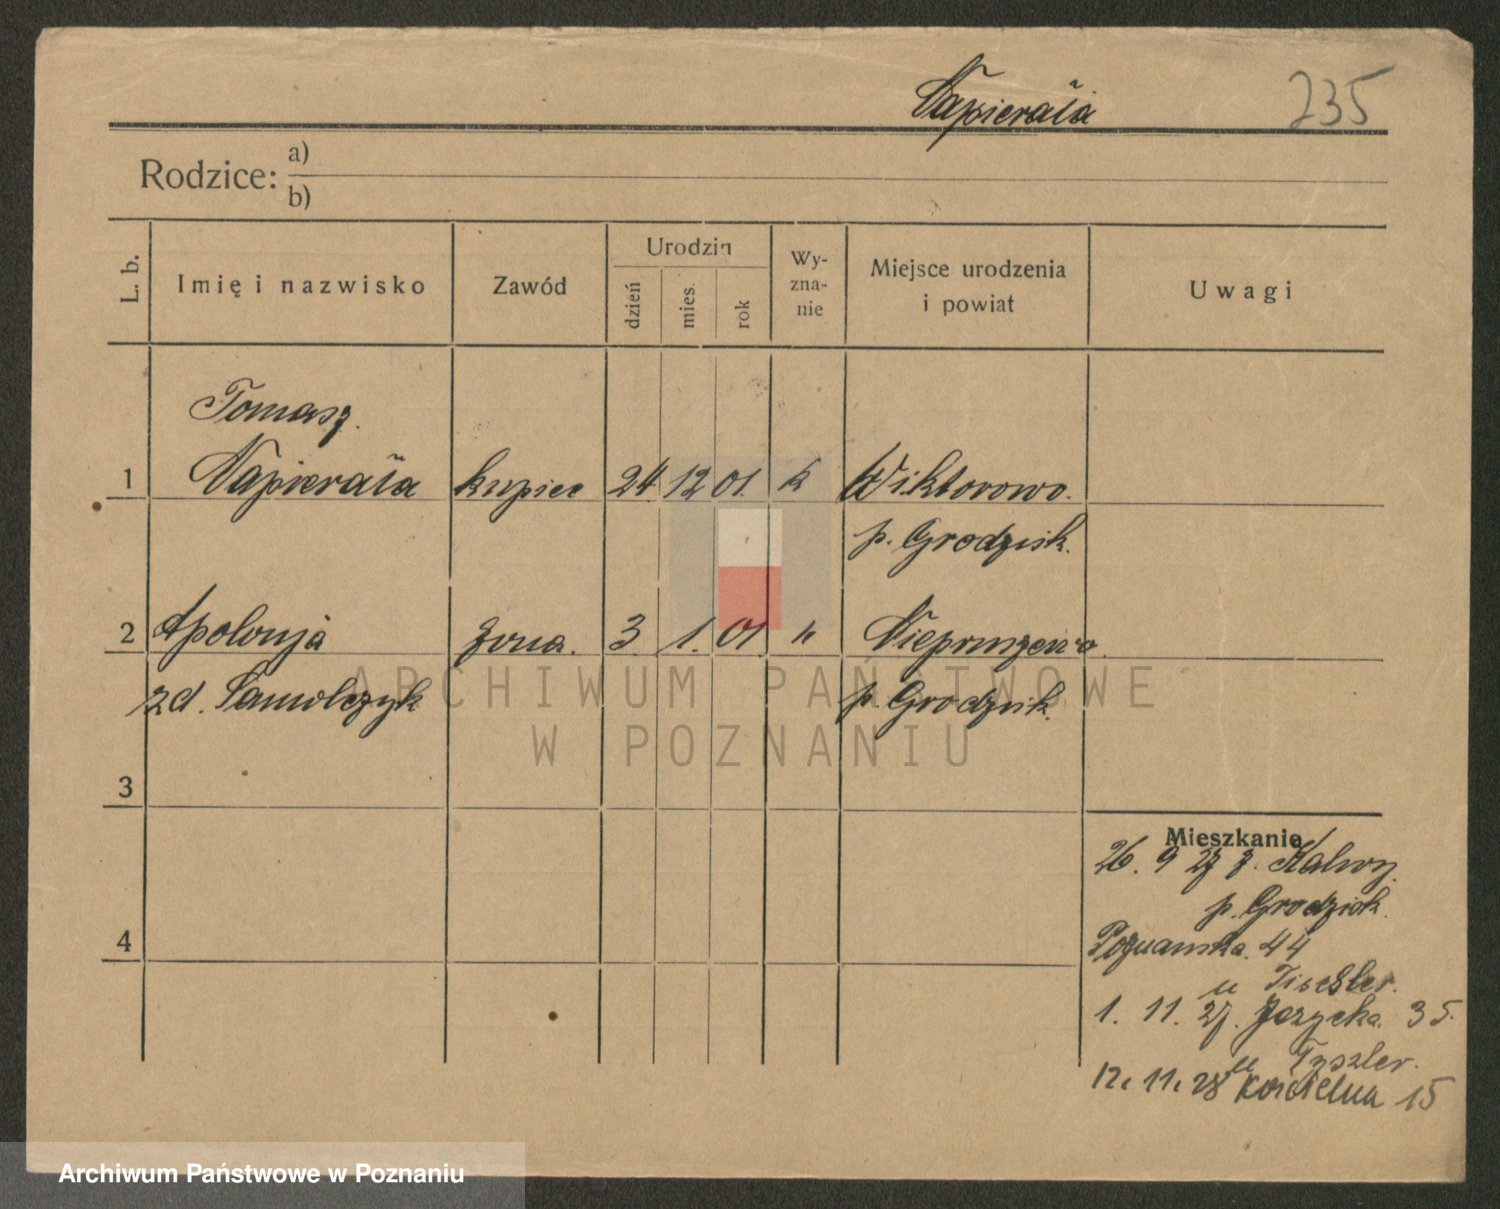 Napierała 235
Rodzice: a)
b)
L. b. Imię i nazwisko Zawód Urodzin dzień mies. rok Wyznanie Miejsce urodzenia i powiat Uwagi
Tomasz
1 Napierała kupiec 24 12 01. k Wiktorowo.
p. Grodzisk.
2 Apolonja żona. 3. 1. 01. " Niepruszewo
zd. Samolczyk p. Grodzisk.
3
4
Mieszkanie
26. 9 27 z. Kalwy.
p. Grodzisk.
Poznańska. 44
u Tischler.
1. 11. 27. Jeżycka. 35.
u Tyszler.
12. 11. 28 Kościelna 15
ARCHIWUM PAŃSTWOWE
W POZNANIU
Archiwum Państwowe w Poznaniu